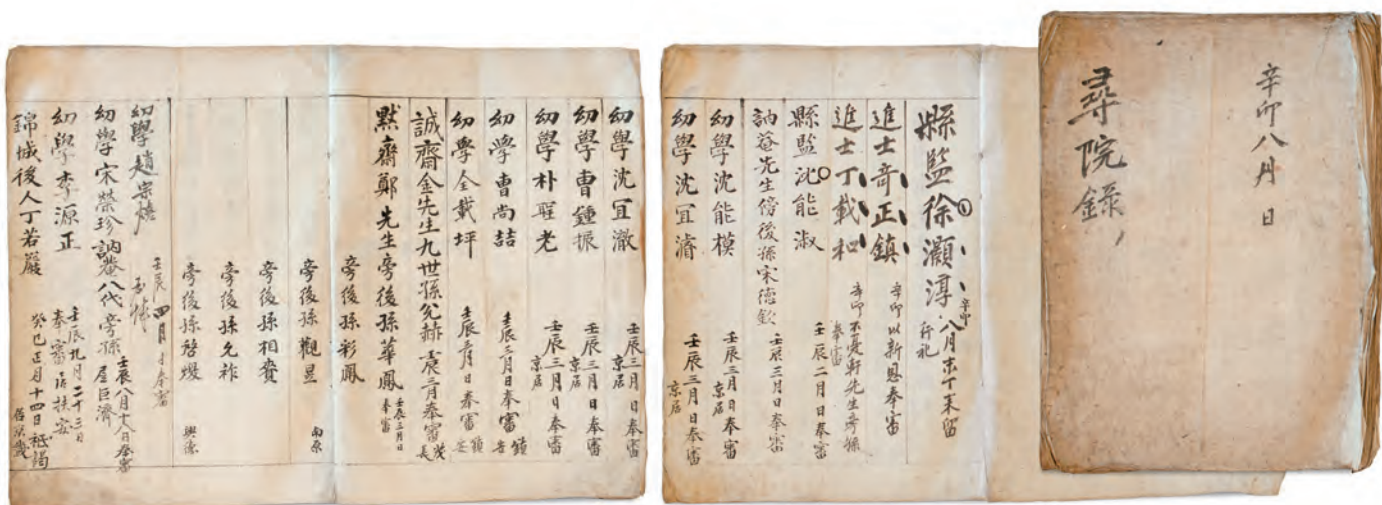 辛卯八月 日
尋院錄
縣監徐灝淳 辛卯八月末丁來留行祀
進士奇正鎭 辛卯以新恩奉審
進士丁載和 辛卯不憂軒先生旁孫奉審
縣監沈能淑 壬辰二月日奉審
訥菴先生傍後孫宋德欽 壬辰三月日奉審
幼學沈能模 壬辰三月日奉審 京居
幼學沈宜濬 壬辰三月日奉審 京居
幼學沈宜澈 壬辰三月日奉審 京居
幼學曹鍾振 壬辰三月日奉審 京居
幼學朴聖老 壬辰三月日奉審 京居
幼學曹尚喆 壬辰三月日奉審 鎮安
幼學全載坪 壬辰三月日奉審 鎮安
誠齋金先生九世孫允赫 壬辰三月奉審 茂長
默齋鄭先生旁後孫華鳳 壬辰三月日奉審
旁後孫彩鳳
旁後孫觀昱 南原
旁後孫相賚
旁後孫允祚
旁後孫啓 興德
幼學趙宗 壬辰四月日奉審
幼學宋榮珍訥菴八代旁孫 壬辰八月十八日奉審 居巨濟
幼學李源正 壬辰九月二十三日奉審 居扶安
錦城後人丁若嚴 癸巳正月十四日祗謁 居京畿